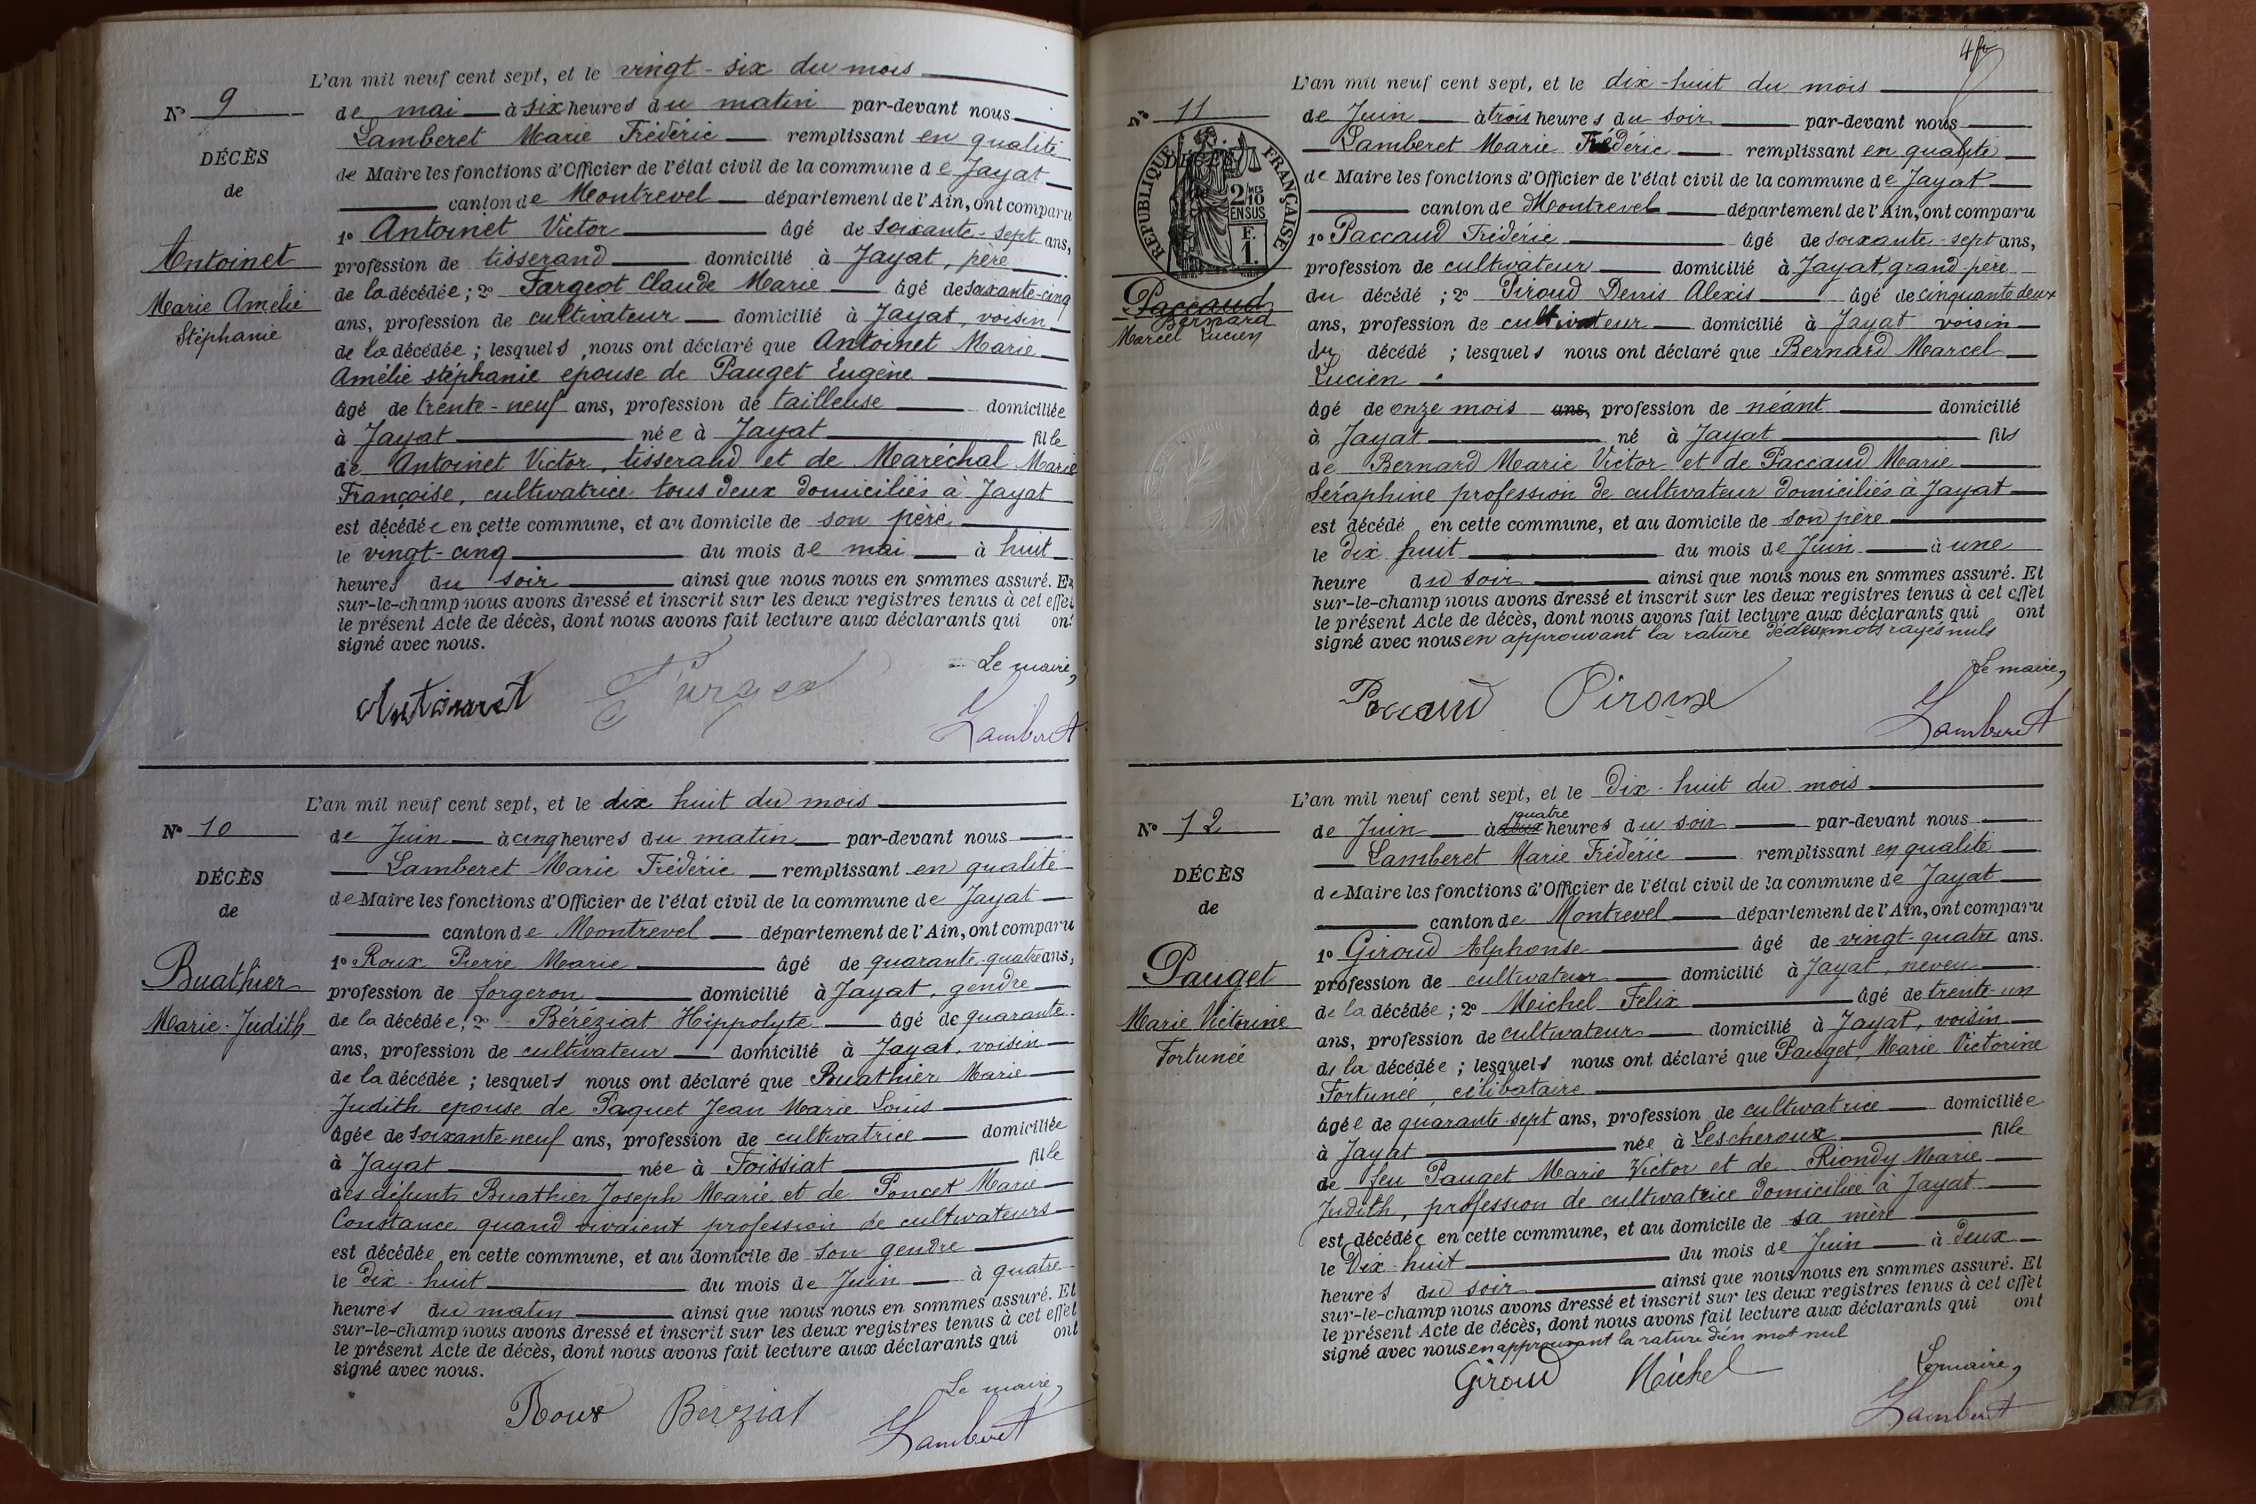 L'an mil neuf cent sept, et le vingt-six du mois
N° 9
de mai à six heures du matin par-devant nous
Lamberet Marie Frédéric remplissant en qualité
DÉCÈS
de Maire les fonctions d'Officier de l'état civil de la commune de Jayat
de
canton de Montrevel département de l'Ain, ont comparu
1° Antoinet Victor âgé de soixante-sept ans,
Antoinet
profession de tisserand domicilié à Jayat, père
Marie Amélie
de la décédée ; 2° Fargeot Claude Marie âgé de soixante-cinq
Stéphanie
ans, profession de cultivateur domicilié à Jayat, voisin
de la décédée ; lesquels nous ont déclaré que Antoinet Marie
Amélie Stéphanie epouse de Pauget Eugène
âgé de trente-neuf ans, profession de tailleuse domiciliée
à Jayat née à Jayat fille
de Antoinet Victor, tisserand et de Maréchal Marie
Françoise, cultivatrice tous deux domiciliés à Jayat
est décédée en cette commune, et au domicile de son père
le vingt-cinq du mois de mai à huit
heures du soir ainsi que nous nous en sommes assuré. Et
sur-le-champ nous avons dressé et inscrit sur les deux registres tenus à cet effet
le présent Acte de décès, dont nous avons fait lecture aux déclarants qui ont
signé avec nous.
Le maire,
Antoinet
Lamberet
L'an mil neuf cent sept, et le dix huit du mois
N° 10
de Juin à cinq heures du matin par-devant nous
Lamberet Marie Frédéric remplissant en qualité
DÉCÈS
de Maire les fonctions d'Officier de l'état civil de la commune de Jayat
de
canton de Montrevel département de l'Ain, ont comparu
1° Roux Pierre Marie âgé de quarante-quatre ans,
Buathier
profession de forgeron domicilié à Jayat, gendre
Marie-Judith
de la décédée ; 2° Béréziat Hippolyte âgé de quarante
ans, profession de cultivateur domicilié à Jayat, voisin
de la décédée ; lesquels nous ont déclaré que Buathier Marie
Judith epouse de Paquet Jean Marie Louis
âgée de soixante neuf ans, profession de cultivatrice domiciliée
à Jayat née à Foissiat fille
des défunts Buathier Joseph Marie et de Poncet Marie
Constance quand vivaient profession de cultivateurs
est décédée en cette commune, et au domicile de son gendre
le dix-huit du mois de Juin à quatre
heures du matin ainsi que nous nous en sommes assuré. Et
sur-le-champ nous avons dressé et inscrit sur les deux registres tenus à cet effet
le présent Acte de décès, dont nous avons fait lecture aux déclarants qui ont
signé avec nous.
Le maire,
Roux Béréziat Lamberet
L'an mil neuf cent sept, et le dix-huit du mois
N° 11
de Juin à trois heures du soir par-devant nous
Lamberet Marie Frédéric remplissant en qualité
DÉCÈS
RÉPUBLIQUE FRANÇAISE
2/10 MES
EN SUS
F.
1.
de Maire les fonctions d'Officier de l'état civil de la commune de Jayat
canton de Montrevel département de l'Ain, ont comparu
1° Paccaud Frédéric âgé de soixante-sept ans,
profession de cultivateur domicilié à Jayat, grand-père
Paccaud
du décédé ; 2° Piroud Denis Alexis âgé de cinquante deux
Bernard
ans, profession de cultivateur domicilié à Jayat voisin
Marcel Lucien
du décédé ; lesquels nous ont déclaré que Bernard Marcel
Lucien
âgé de onze mois ans, profession de néant domicilié
à Jayat né à Jayat fils
de Bernard Marie Victor et de Paccaud Marie
Séraphine profession de cultivateur domiciliés à Jayat
est décédé en cette commune, et au domicile de son père
le dix huit du mois de Juin à une
heure du soir ainsi que nous nous en sommes assuré. Et
sur-le-champ nous avons dressé et inscrit sur les deux registres tenus à cet effet
le présent Acte de décès, dont nous avons fait lecture aux déclarants qui ont
signé avec nous en approuvant la rature de deux mots rayés nuls
Le maire,
Paccaud Piroux Lamberet
L'an mil neuf cent sept, et le Dix-huit du mois
quatre
N° 12
de Juin à deux heures du soir par-devant nous
Lamberet Marie Frédéric remplissant en qualité
DÉCÈS
de Maire les fonctions d'Officier de l'état civil de la commune de Jayat
de
canton de Montrevel département de l'Ain, ont comparu
1° Giroud Alphonse âgé de vingt-quatre ans.
Pauget
profession de cultivateur domicilié à Jayat, neveu
Marie Victorine
de la décédée ; 2° Michel Felix âgé de trente-un
Fortunée
ans, profession de cultivateur domicilié à Jayat, voisin
de la décédée ; lesquels nous ont déclaré que Pauget, Marie Victorine
Fortunée, célibataire
âgée de quarante-sept ans, profession de cultivatrice domiciliée
à Jayat née à Lescheroux fille
de feu Pauget Marie Victor et de Riondy Marie
Judith, profession de cultivatrice domiciliée à Jayat
est décédée en cette commune, et au domicile de sa mère
le Dix-huit du mois de Juin à deux
heures du soir ainsi que nous nous en sommes assuré. Et
sur-le-champ nous avons dressé et inscrit sur les deux registres tenus à cet effet
le présent Acte de décès, dont nous avons fait lecture aux déclarants qui ont
signé avec nous en approuvant la rature d'un mot nul
Le maire,
Giroud Michel Lamberet